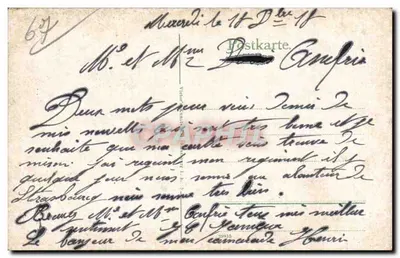 67
Mercredi le 18 Dbre 18
Postkarte.
Mr et Mme Canfrie
Deux mots pour vous donner de
mes nouvelles qui sont très bonne et je
souhaite que ma carte vous trouve de
même j'ai rejoint mon régiment il y
quelque jour nous sommes au alentour de
Strasbourg nous sommes très bien.
Recevez Mr et Mme mes meilleur
sentiment
Le bonjour de mon camarade Henri